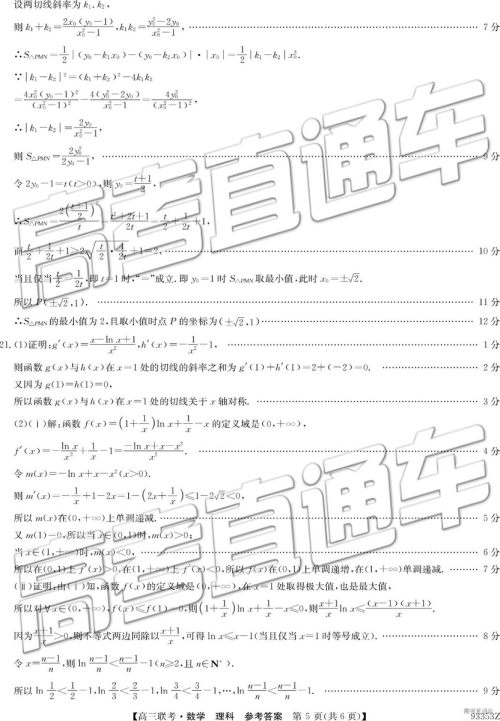 设两切线斜率为k₁,k₂,
则k₁+k₂=2x₀(y₀-1)/(x₀²-1),k₁k₂=(y₀²-2y₀)/(x₀²-1), 7分
∴S△PMN=1/2|(y₀-k₁x₀)-(y₀-k₂x₀)|·|x₀|=1/2|k₁-k₂|x₀².
∵|k₁-k₂|²=(k₁+k₂)²-4k₁k₂
=4x₀²(y₀-1)²/(x₀²-1)²-4(y₀²-2y₀)/(x₀²-1)=4y₀²/(x₀²-1)²,
∴|k₁-k₂|=2y₀/(x₀²-1),
则S△PMN=2y₀²/(2y₀-1), 9分
令2y₀-1=t(t>0),则y₀=(t+1)/2,
∴S△PMN=2((t+1)/2)²/t=(t²+2t+1)/2t=t/2+1/2t+1,
而t/2+1/2t+1≥2√(t/2·1/2t)+1=2, 10分
当且仅当t/2=1/2t,即t=1时,“=”成立.即y₀=1时S△PMN取最小值,此时x₀=±√2.
所以P(±√2,1). 11分
∴S△PMN的最小值为2,且取小值时点P的坐标为(±√2,1) 12分
21.(1)证明:g′(x)=(x-ln x+1)/x²,h′(x)=-1/x²-1, 1分
则函数g(x)与h(x)在x=1处的切线的斜率之和为g′(1)+h′(1)=2+(-2)=0. 2分
又因为g(1)=h(1)=0,
所以函数g(x)与h(x)在x=1处的切线关于x轴对称. 3分
(2)(ⅰ)解:函数f(x)=(1+1/x)ln x+1/x-x的定义域是(0,+∞),
f′(x)=-ln x/x²+1/x-1=(-ln x+x-x²)/x². 4分
令m(x)=-ln x+x-x²(x>0).
则m′(x)=-1/x+1-2x=1-(2x+1/x)≤1-2√2<0,
所以m(x)在(0,+∞)上单调递减. 5分
又m(1)=0,所以当x∈(0,1)时,m(x)>0;
当x∈(1,+∞)时,m(x)<0, 6分
所以在(0,1)上f′(x)>0,在(1,+∞)上f′(x)<0,所以f(x)在(0,1)上单调递增,在(1,+∞)单调递减. 7分
(ⅱ)证明:由(ⅰ)知,函数f(x)的定义域是(0,+∞),在x=1处取得极大值,也是最大值,
所以对∀x∈(0,+∞),f(x)≤f(1)=0,则(1+1/x)ln x+1/x-x≤0,则(x+1)/x ln x≤(x-1)(x+1)/x.
因为(x+1)/x>0,则不等式两边同除以(x+1)/x,可得ln x≤x-1(当且仅当x=1时等号成立). 8分
令x=(n-1)/n,则ln (n-1)/n<(n-1)/n-1(n≥2,且n∈N*).
所以ln 1/2<1/2-1,ln 2/3<2/3-1,ln 3/4<3/4-1,…,ln (n-1)/n<(n-1)/n-1. 9分
【高三联考·数学 理科 参考答案 第5页(共6页)】 93353Z
高考直通车
高考直通车
高考直通车